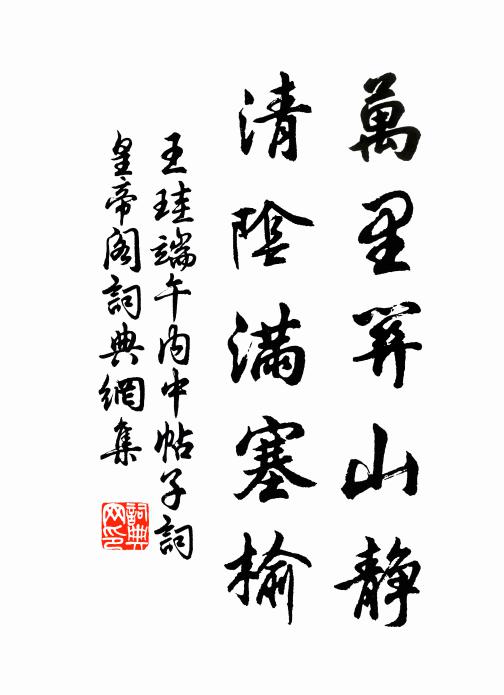 萬里關山靜
清陰滿塞榆
王珪端午内中帖子詞
皇帝閣詞典網集
詞典
网印